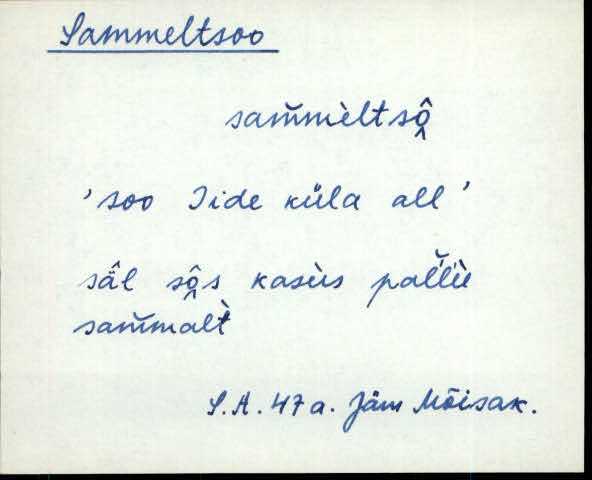 Sammeltsoo
sam̆mèltsô̭
'soo Iide küla all'
säl sô̭s kasùs pal̆l̆ù
sam̆malt̀
S.A. 47 a. Jäm Mõisak.